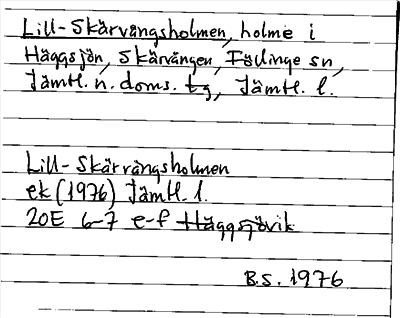 Lill-Skärvångsholmen, holme i
Häggsjön, Skärvången, Föllinge sn,
Jämtl. n. doms. tg, Jämtl. l.
Lill-Skärvångsholmen
ek (1976) Jämtl. l.
20E 6-7 e-f Häggsjövik
B.S. 1976